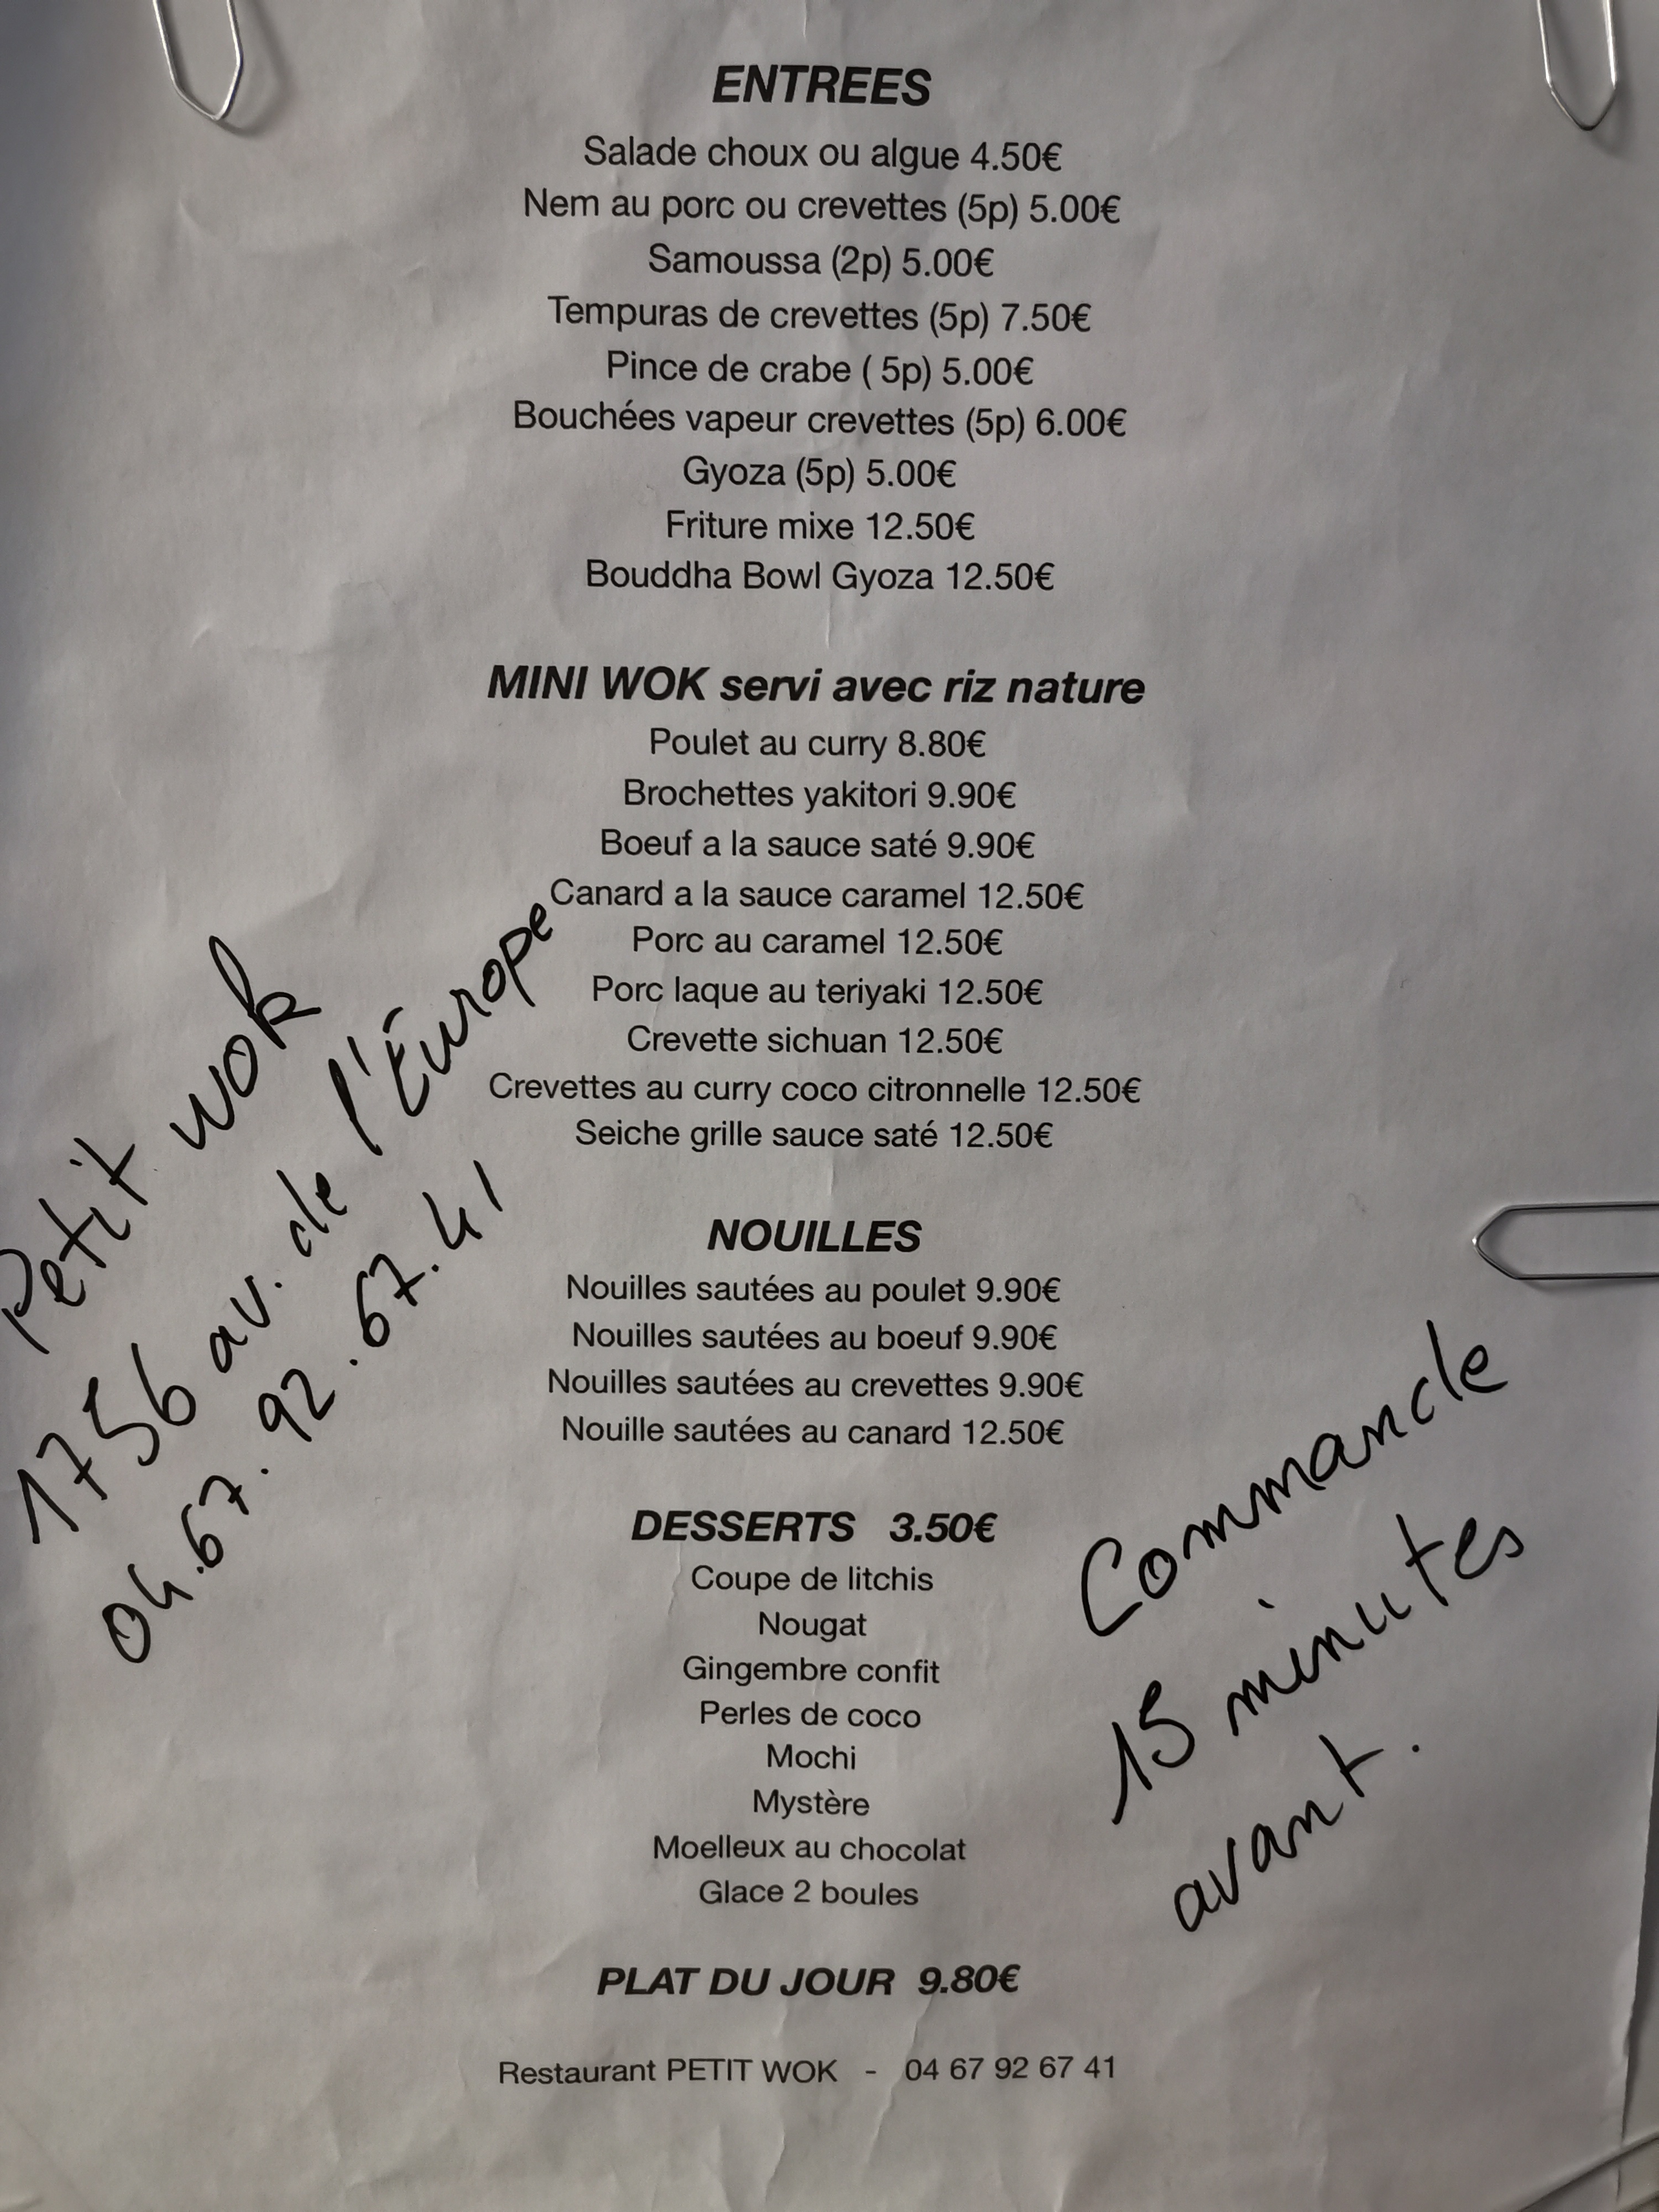 ENTREES
Salade choux ou algue 4.50€
Nem au porc ou crevettes (5p) 5.00€
Samoussa (2p) 5.00€
Tempuras de crevettes (5p) 7.50€
Pince de crabe ( 5p) 5.00€
Bouchées vapeur crevettes (5p) 6.00€
Gyoza (5p) 5.00€
Friture mixe 12.50€
Bouddha Bowl Gyoza 12.50€
MINI WOK servi avec riz nature
Poulet au curry 8.80€
Brochettes yakitori 9.90€
Boeuf a la sauce saté 9.90€
Canard a la sauce caramel 12.50€
Porc au caramel 12.50€
Porc laque au teriyaki 12.50€
Crevette sichuan 12.50€
Crevettes au curry coco citronnelle 12.50€
Seiche grille sauce saté 12.50€
NOUILLES
Nouilles sautées au poulet 9.90€
Nouilles sautées au boeuf 9.90€
Nouilles sautées au crevettes 9.90€
Nouille sautées au canard 12.50€
DESSERTS 3.50€
Coupe de litchis
Nougat
Gingembre confit
Perles de coco
Mochi
Mystère
Moelleux au chocolat
Glace 2 boules
PLAT DU JOUR 9.80€
Restaurant PETIT WOK - 04 67 92 67 41
Petit wok
1756 av. de l'Europe
04.67.92.67.41
Commande
15 minutes
avant.